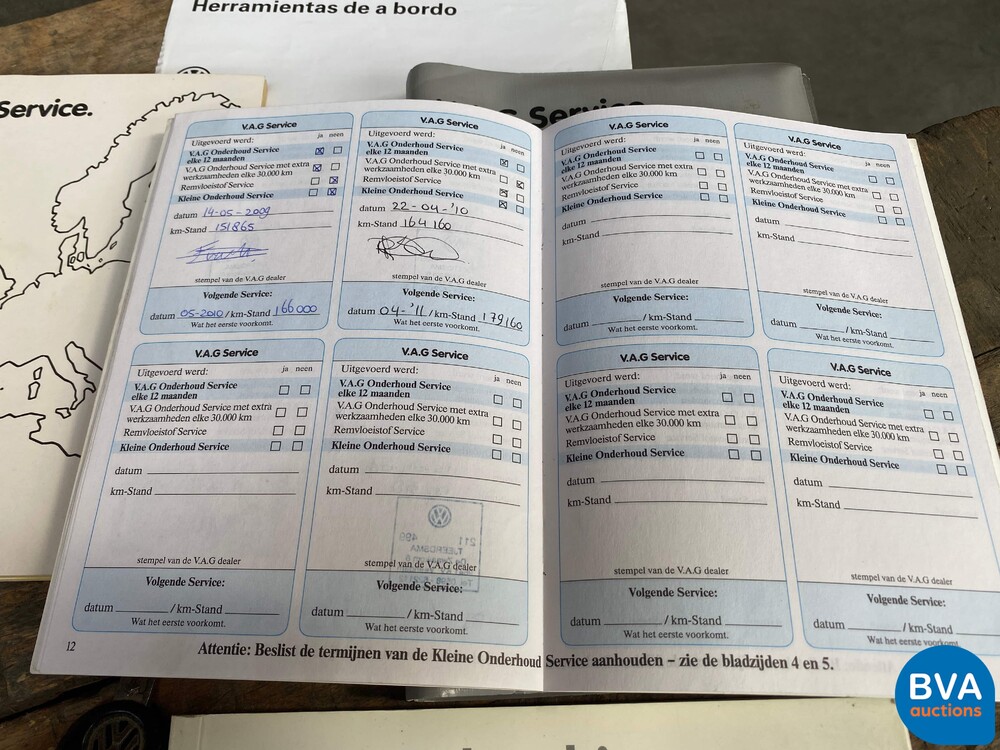 Herramientas de a bordo
Service.
V.A.G Service
Uitgevoerd werd:
ja neen
V.A.G Onderhoud Service
elke 12 maanden
V.A.G Onderhoud Service met extra
werkzaamheden elke 30.000 km
Remvloeistof Service
Kleine Onderhoud Service
datum 14-05-2009
km-Stand 151865
stempel van de V.A.G dealer
Volgende Service:
datum 05-2010 / km-Stand 166000
Wat het eerste voorkomt.
V.A.G Service
Uitgevoerd werd:
ja neen
V.A.G Onderhoud Service
elke 12 maanden
V.A.G Onderhoud Service met extra
werkzaamheden elke 30.000 km
Remvloeistof Service
Kleine Onderhoud Service
datum 22-04-'10
km-Stand 164160
stempel van de V.A.G dealer
Volgende Service:
datum 04-'11 / km-Stand 179160
Wat het eerste voorkomt.
V.A.G Service
Uitgevoerd werd:
ja neen
V.A.G Onderhoud Service
elke 12 maanden
V.A.G Onderhoud Service met extra
werkzaamheden elke 30.000 km
Remvloeistof Service
Kleine Onderhoud Service
datum
km-Stand
stempel van de V.A.G dealer
Volgende Service:
datum / km-Stand
Wat het eerste voorkomt.
V.A.G Service
Uitgevoerd werd:
ja neen
V.A.G Onderhoud Service
elke 12 maanden
V.A.G Onderhoud Service met extra
werkzaamheden elke 30.000 km
Remvloeistof Service
Kleine Onderhoud Service
datum
km-Stand
stempel van de V.A.G dealer
Volgende Service:
datum / km-Stand
Wat het eerste voorkomt.
V.A.G Service
Uitgevoerd werd:
ja neen
V.A.G Onderhoud Service
elke 12 maanden
V.A.G Onderhoud Service met extra
werkzaamheden elke 30.000 km
Remvloeistof Service
Kleine Onderhoud Service
datum
km-Stand
stempel van de V.A.G dealer
Volgende Service:
datum / km-Stand
Wat het eerste voorkomt.
V.A.G Service
Uitgevoerd werd:
ja neen
V.A.G Onderhoud Service
elke 12 maanden
V.A.G Onderhoud Service met extra
werkzaamheden elke 30.000 km
Remvloeistof Service
Kleine Onderhoud Service
datum
km-Stand
stempel van de V.A.G dealer
Volgende Service:
datum / km-Stand
Wat het eerste voorkomt.
V.A.G Service
Uitgevoerd werd:
ja neen
V.A.G Onderhoud Service
elke 12 maanden
V.A.G Onderhoud Service met extra
werkzaamheden elke 30.000 km
Remvloeistof Service
Kleine Onderhoud Service
datum
km-Stand
stempel van de V.A.G dealer
Volgende Service:
datum / km-Stand
Wat het eerste voorkomt.
V.A.G Service
Uitgevoerd werd:
ja neen
V.A.G Onderhoud Service
elke 12 maanden
V.A.G Onderhoud Service met extra
werkzaamheden elke 30.000 km
Remvloeistof Service
Kleine Onderhoud Service
datum
km-Stand
stempel van de V.A.G dealer
Volgende Service:
datum / km-Stand
Wat het eerste voorkomt.
12
Attentie: Beslist de termijnen van de Kleine Onderhoud Service aanhouden – zie de bladzijden 4 en 5.
BVA
auctions